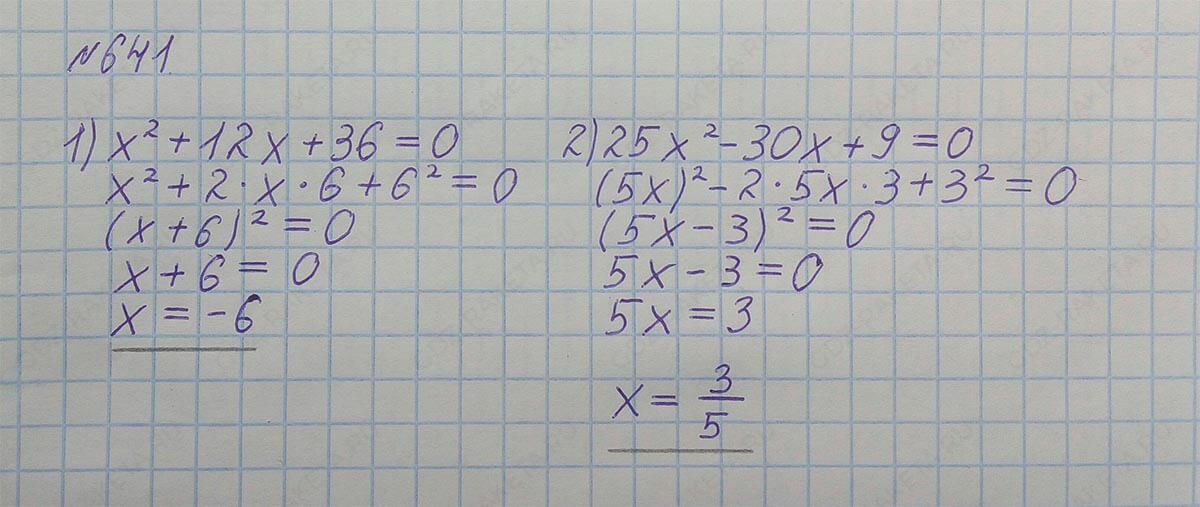 №641
1) x² + 12x + 36 = 0
x² + 2·x·6 + 6² = 0
(x + 6)² = 0
x + 6 = 0
x = -6
2) 25x² - 30x + 9 = 0
(5x)² - 2·5x·3 + 3² = 0
(5x - 3)² = 0
5x - 3 = 0
5x = 3
x = 3/5